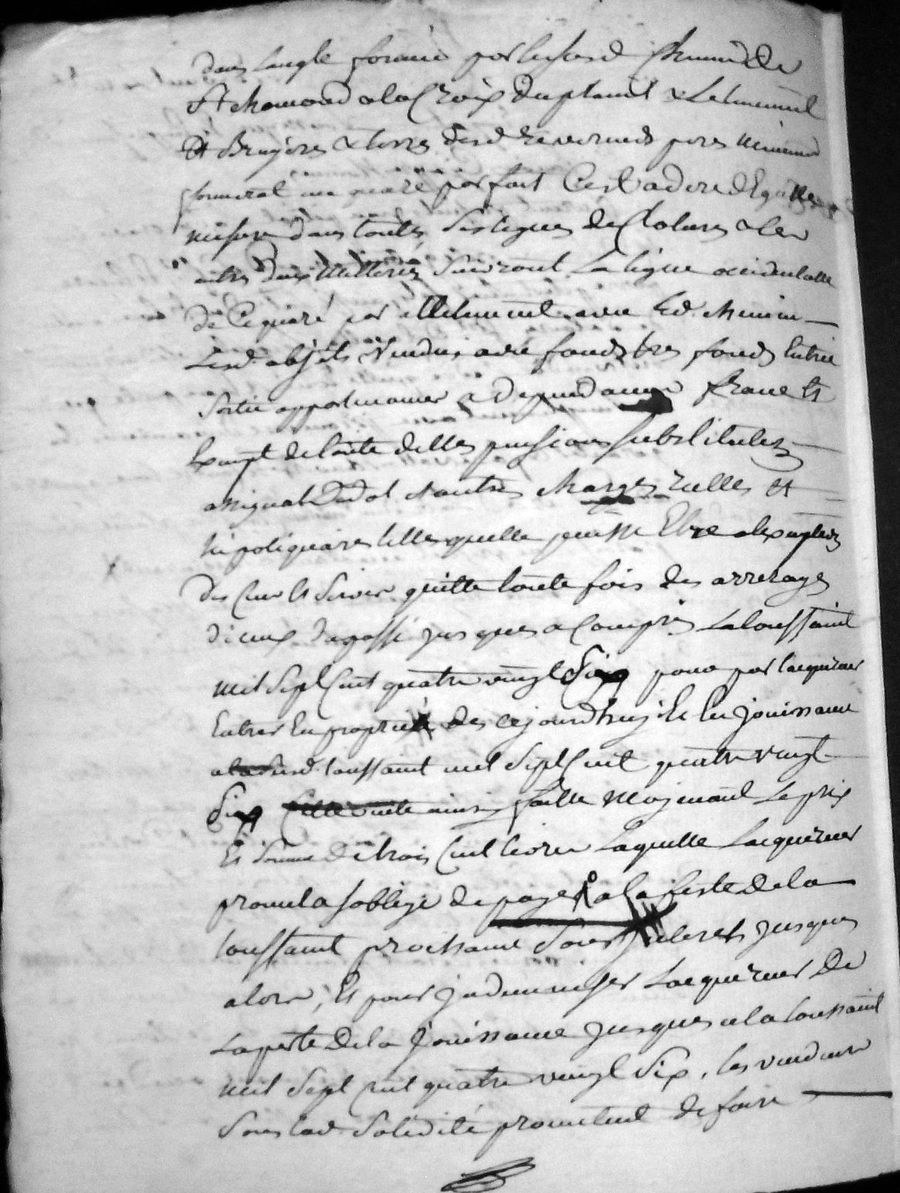 dans langle formé par lesusd chemin de
St chamond a la Croix du plan et
Et Bruyeres & terres desd reverends peres minimes
formerat un quaré parfait Cest a dire dEgalle
mesure dans toutes ses lignes de Clotures & les
suivront La ligne occidentalle
de Ce quaré par
Lesd objets vendus avec fonds tres fonds Entrée
sortie appartenances & dependances franc Et
Exempt de toute dettes pensions substitutions
assignat Dedot & autres charges reelles Et
hipotiquaires telles quelle puisse Etre alexception
des Cens Et Servis quitte toute fois des arrerages
diceux du passé jusques a Compris La toussaint
mil Sept Cent quatre vingt Six pour par lacquereur
Entrer En proprieté des cejourdhuy Et En jouissance
a lad toussaint mil Sept Cent quatre vingt
Six Cette vente ainsy faitte moyenant Le prix
Et Somme de trois Cent livres Laquelle Lacquereur
promet & soblige de payer a la feste de la
toussaint prochaine Sans interets jusques
alors, Et pour indemniser Lacquereur De
La perte de la jouissance jusques a la toussaint
mil Sept Cent quatre vingt Six, les vendeurs
Sous lad Solidité promettent de faire